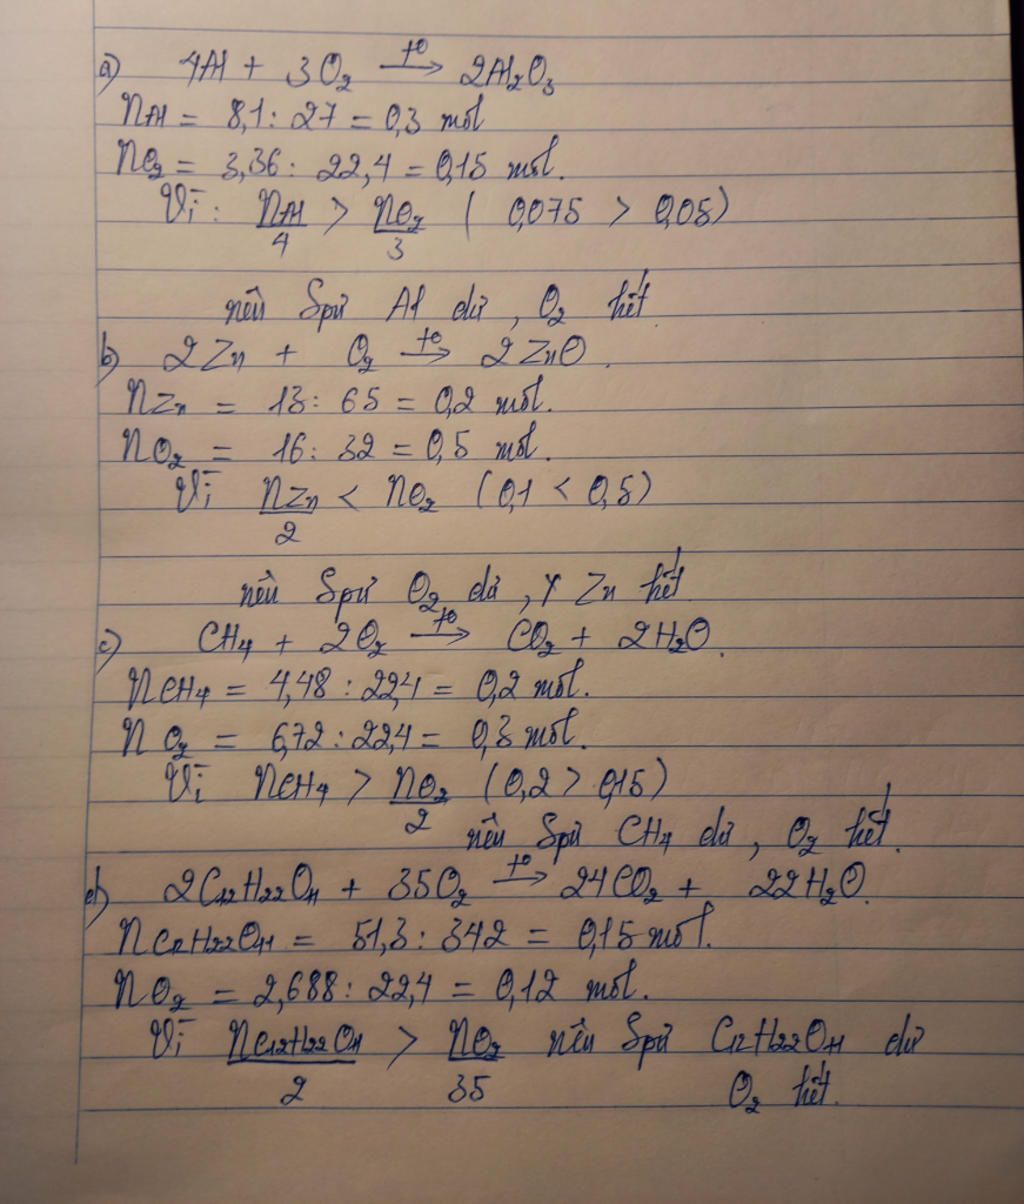 a) 4Al + 3O₂ t⁰→ 2Al₂O₃
nAl = 8,1 : 27 = 0,3 mol
nO₂ = 3,36 : 22,4 = 0,15 mol.
Vì : nAl/4 > nO₂/3 ( 0,075 > 0,05)
nên Spứ Al dư , O₂ hết
b) 2Zn + O₂ t⁰→ 2ZnO .
nZn = 13 : 65 = 0,2 mol.
nO₂ = 16 : 32 = 0,5 mol.
Vì nZn/2 < nO₂ (0,1 < 0,5)
nên Spứ O₂ dư , Zn hết
c) CH₄ + 2O₂ t⁰→ CO₂ + 2H₂O .
nCH₄ = 4,48 : 22,4 = 0,2 mol.
nO₂ = 6,72 : 22,4 = 0,3 mol.
Vì nCH₄ > nO₂/2 (0,2 > 0,15)
nên Spứ CH₄ dư , O₂ hết .
d) 2C₁₂H₂₂O₁₁ + 35O₂ t⁰→ 24CO₂ + 22H₂O.
nC₁₂H₂₂O₁₁ = 51,3 : 342 = 0,15 mol.
nO₂ = 2,688 : 22,4 = 0,12 mol.
Vì nC₁₂H₂₂O₁₁/2 > nO₂/35 nên Spứ C₁₂H₂₂O₁₁ dư
O₂ hết.